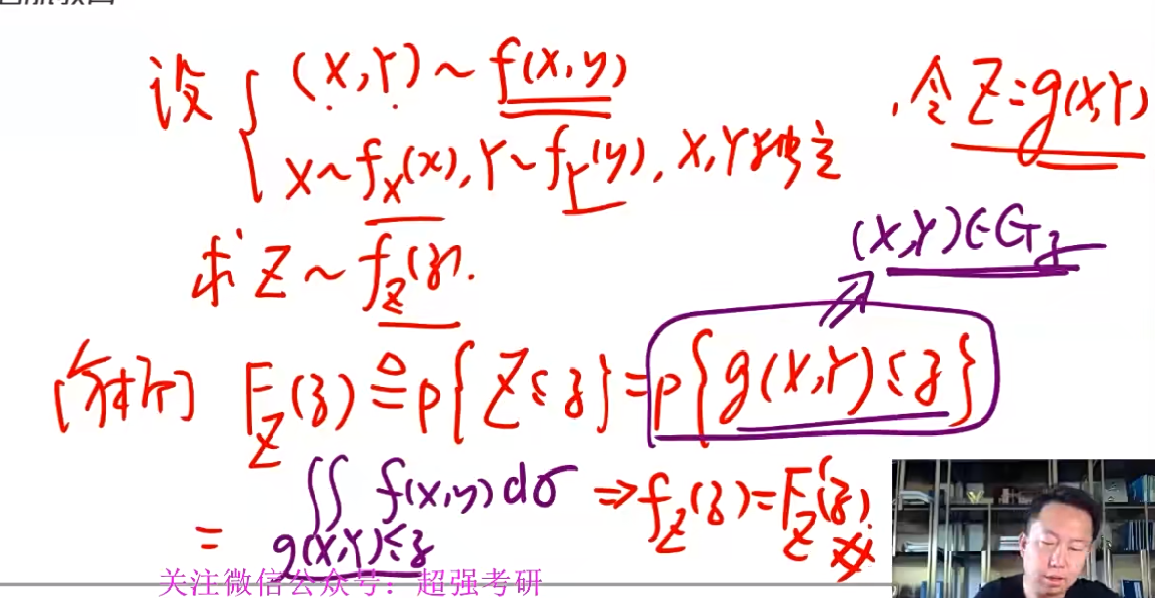 设 { (X,Y) ~ f(x,y)
X ~ f_X(x), Y ~ f_Y(y), X,Y 独立
, 令 Z=g(X,Y)
求 Z ~ f_Z(z).
(X,Y)∈G_z
[分析] F_Z(z) ≜ P{Z≤z} = P{g(X,Y)≤z}
= ∬ f(x,y)dσ ⇒ f_Z(z)=F_Z'(z).
g(X,Y)≤z
关注微信公众号：超强考研